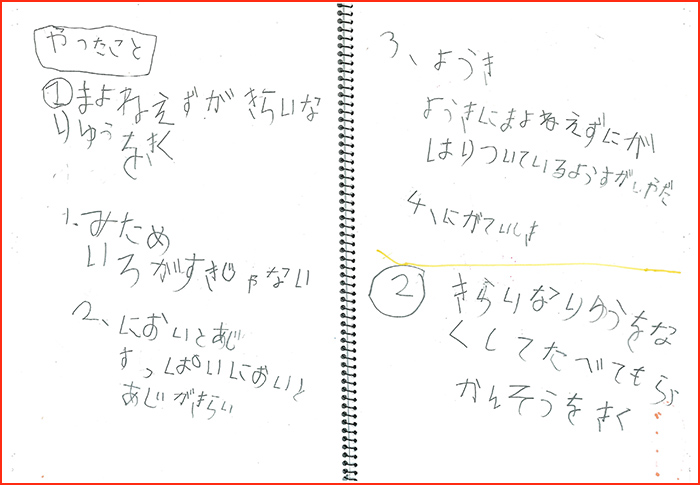 やったこと
①まよねえずがきらいな
りゆうをきく
1.みため
いろがすきじゃない
2、においとあじ
すっぱいにおいと
あじがきらい
3、ようき
ようきにまよねえずにが
はりついているようすがいやだ
4、にがていしき
②きらりなりゆうをな
くしてたべてもらう
かんそうをきく